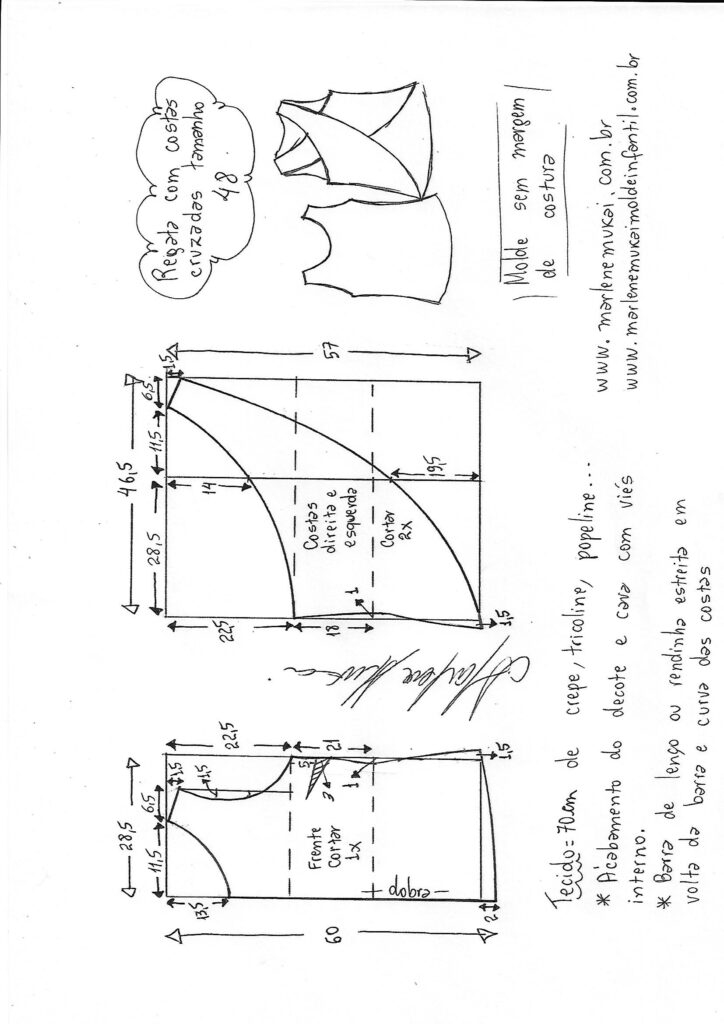 Regata com costas
cruzadas tamanho
48
Molde sem margem
de costura
46,5
28,5
11,5
6,5
1,5
57
14
19,5
22,5
18
1
1,5
Costas
direita e
esquerda
Cortar
2x
28,5
11,5
6,5
1,5
1,5
22,5
21
5
3
1
1,5
13,5
60
2
Frente
Cortar
1x
dobra
www.marlenemukai.com.br
www.marlenemukaimoldeinfantil.com.br
Tecido=70cm de crepe, tricoline, popeline...
* Acabamento do decote e cava com viés
interno.
* Barra de lenço ou rendinha estreita em
volta da barra e curva das costas